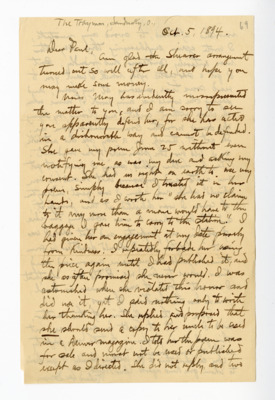 The Trayman, Sandusky, O.
69
Oct. 5, 1894.
Dear Paul,
I am glad the Shearer arrangement
turned out so well after all, and hope you
may make some money.
Miss May has evidently misrepresented
the matter to you, and I am sorry to see
you apparently defend her, for she has acted
in a dishonorable way and cannot be defended.
She gave my poem June 25 without even
notifying me as was my due and asking my
consent. She had no right on earth to use my
poem, simply because I trusted it in her
hands, and as I wrote her "she had no claim
to it any more than a man would have to the
baggage I gave him to carry to the station." I
had given her an engagement at my fete purely
from kindness. I plainly forbade her using
the piece again until I had published it and
she often promised she never would. I was
astonished when she violated this honor and
did it, yet I said nothing only to write
her thanking her. She replied and proposed that
she should send a copy to her uncle to be used
in a Denver magazine. I told her the poem was
for sale and must not be used or published
except as I directed. She did not reply, and two